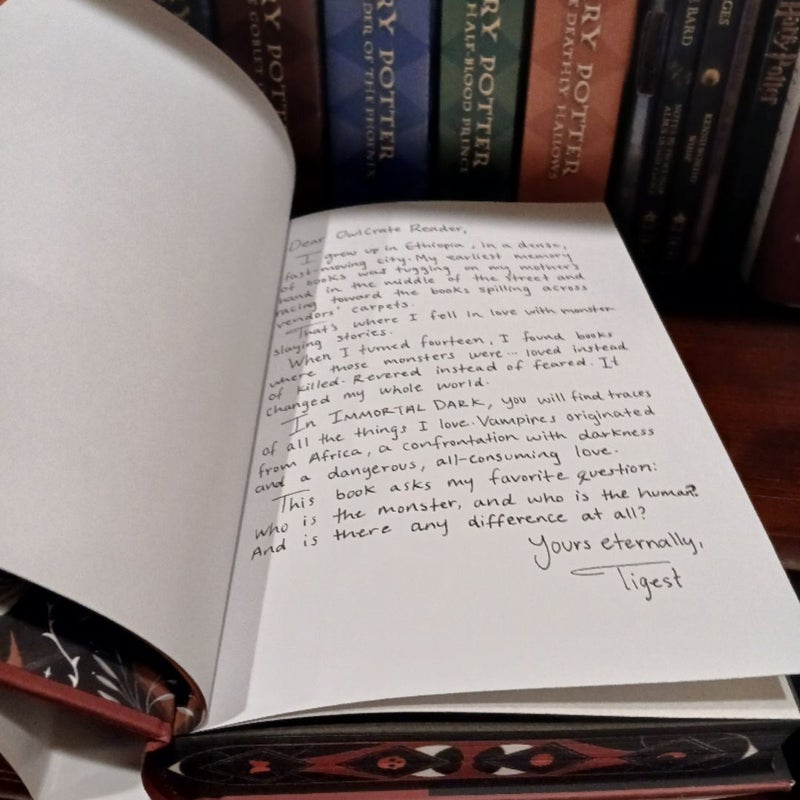 RY POTTER
GOBLET
RY POTTER
DER OF THE PHOENIX
RY POTTER
HALF-BLOOD PRINCE
RY POTTER
DEATHLY HALLOWS
BARD
GES
Harry Potter
Dear OwlCrate Reader,
I grew up in Ethiopia, in a dense,
fast-moving city. My earliest memory
of books was tugging on my mother's
hand in the middle of the street and
racing toward the books spilling across
vendors' carpets.
That's where I fell in love with monster-
slaying stories.
When I turned fourteen, I found books
where those monsters were... loved instead
of killed. Revered instead of feared. It
changed my whole world.
In IMMORTAL DARK, you will find traces
of all the things I love. Vampires originated
from Africa, a confrontation with darkness
and a dangerous, all-consuming love.
This book asks my favorite question:
who is the monster, and who is the human?
And is there any difference at all?
Yours eternally,
Tigest